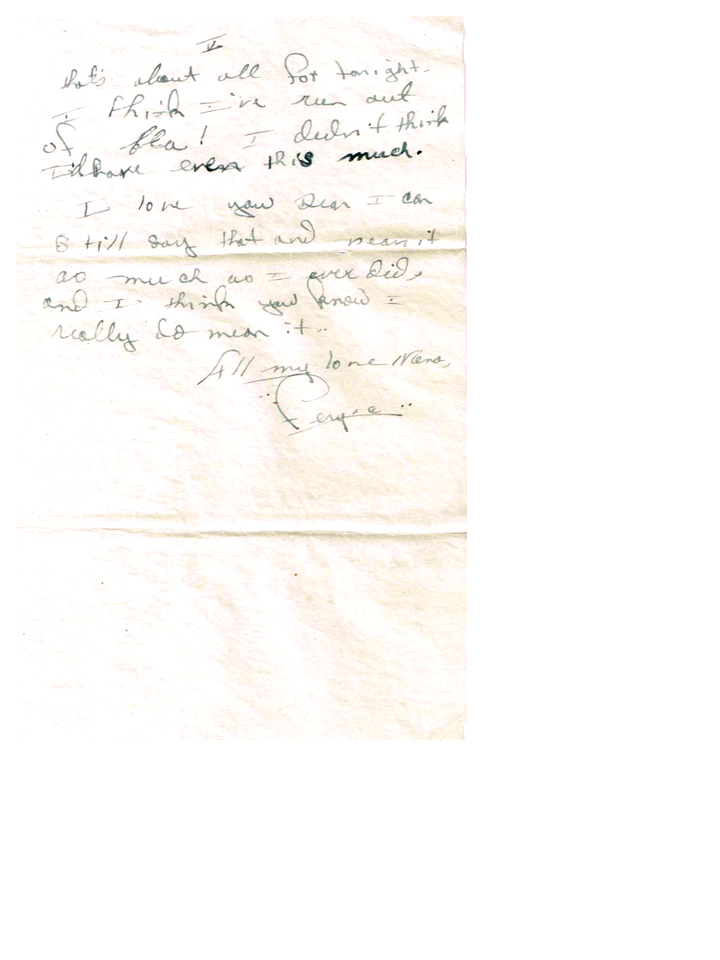 V
that's about all for tonight.
I think I've run out
of bla! I didn't think
I'd have even this much.
I love you Dear I can
still say that and mean it
as much as I ever did,
and I think you know I
really do mean it..
All my love